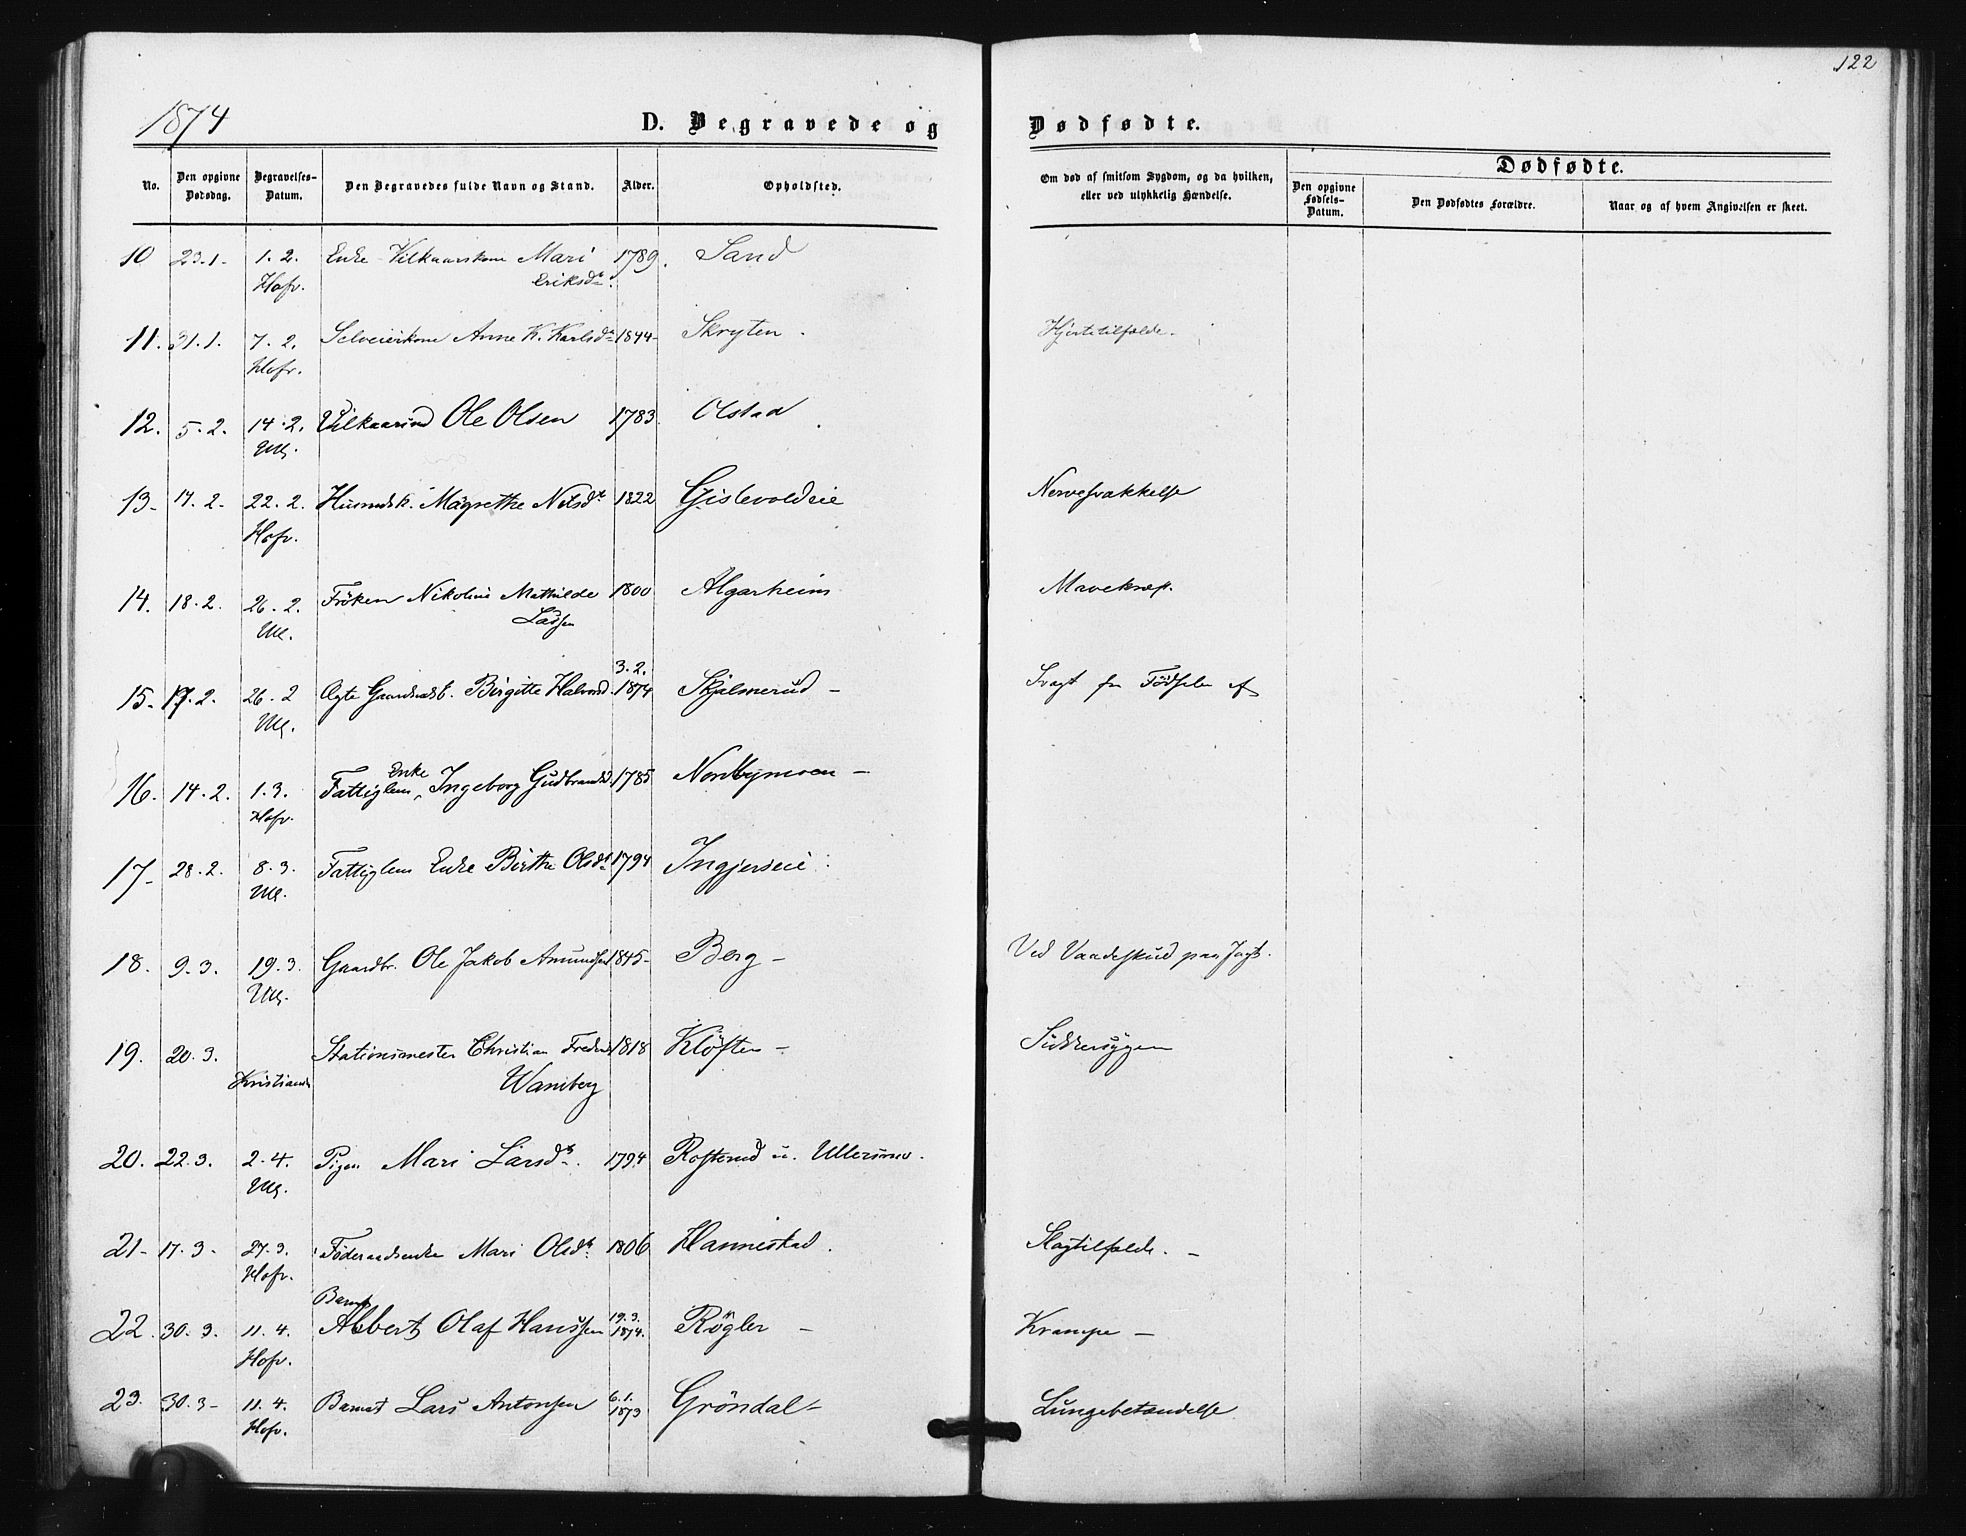 122
1874 D. Begravede og Dødfødte.
Dødfødte.
No. Den opgivne Dødsdag. Begravelses-Datum. Den Begravedes fulde Navn og Stand. Alder. Opholdsted. Om død af smitsom Sygdom, og da hvilken, eller ved ulykkelig Hændelse. Den opgivne Fødsels-Datum. Den Dødfødtes Forældre. Naar og af hvem Angivelsen er skeet.
10 23.1- 1.2. Enke Vilkaarskone Mari 1789. Sand
Hofv. Eriksdt.
11. 31.1. 7.2. Selveierkone Anne K. Karlsdt 1844- Skryten. Hjertetilfælde.
Hofv.
12. 5.2. 14.2. Vilkaarsmd Ole Olsen 1783. Olstad
Ull.
13- 14.2- 22.2. Husmdsk. Magrethe Nilsdt 1822 Gislevoldeie Nervesvækkelse
Hofv.
14. 18.2. 26.2. Fröken Nikoline Mathilde 1800 Algarheim Mavekræft.
Ull. Lassen
3.2.
15- 17.2. 26.2 Ægte Gaardmdsb. Birgitte Halvorsd. 1874 Skjalmerud - Svagt fra Födselen af
Ull.
Enke
16. 14.2. 1.3. Fattiglem, Ingeborg Gudbrandsd. 1785 Nordbymoen -
Hofv.
17- 28.2. 8.3. Fattiglem Enke Birthe Olsdt 1794 Ingjerseie
Ull.
18. 9.3. 19.3. Gaardbr. Ole Jakob Amundsen 1845- Berg - Ved Vaadeskud paa Jagt.
Ull.
19. 20.3. Stationsmester Christian Frederik 1818 Klöften - Sukkersygen
Kristiania Wamberg
20. 22.3. 2.4. Pigen Mari Larsdt. 1794 u. Ullersmo.
Ull.
21- 17.3- 27.3. Föderaadsenke Mari Olsdt. 1806 Hannestad. Slagtilfælde. -
Hofv.
Barnet 19.3.
22. 30.3. 11.4. Albert Olaf Hanssen 1874. Rögler - Krampe -
Hofv.
6.1.
23. 30.3- 11.4. Barnet Lars Antonsen 1873 Gröndal - Lungebetændelse
Hofv.